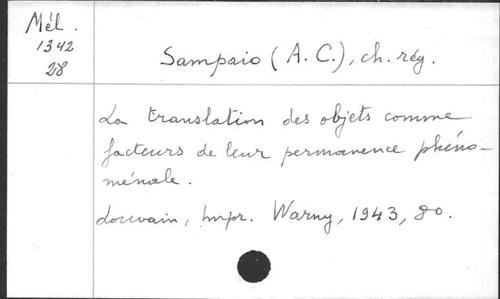 Mél.
1342
28
Sampaio (A. C.), ch. rég.
La translation des objets comme
facteurs de leur permanence phéno-
ménale.
Louvain, Impr. Warny, 1943, 8o.